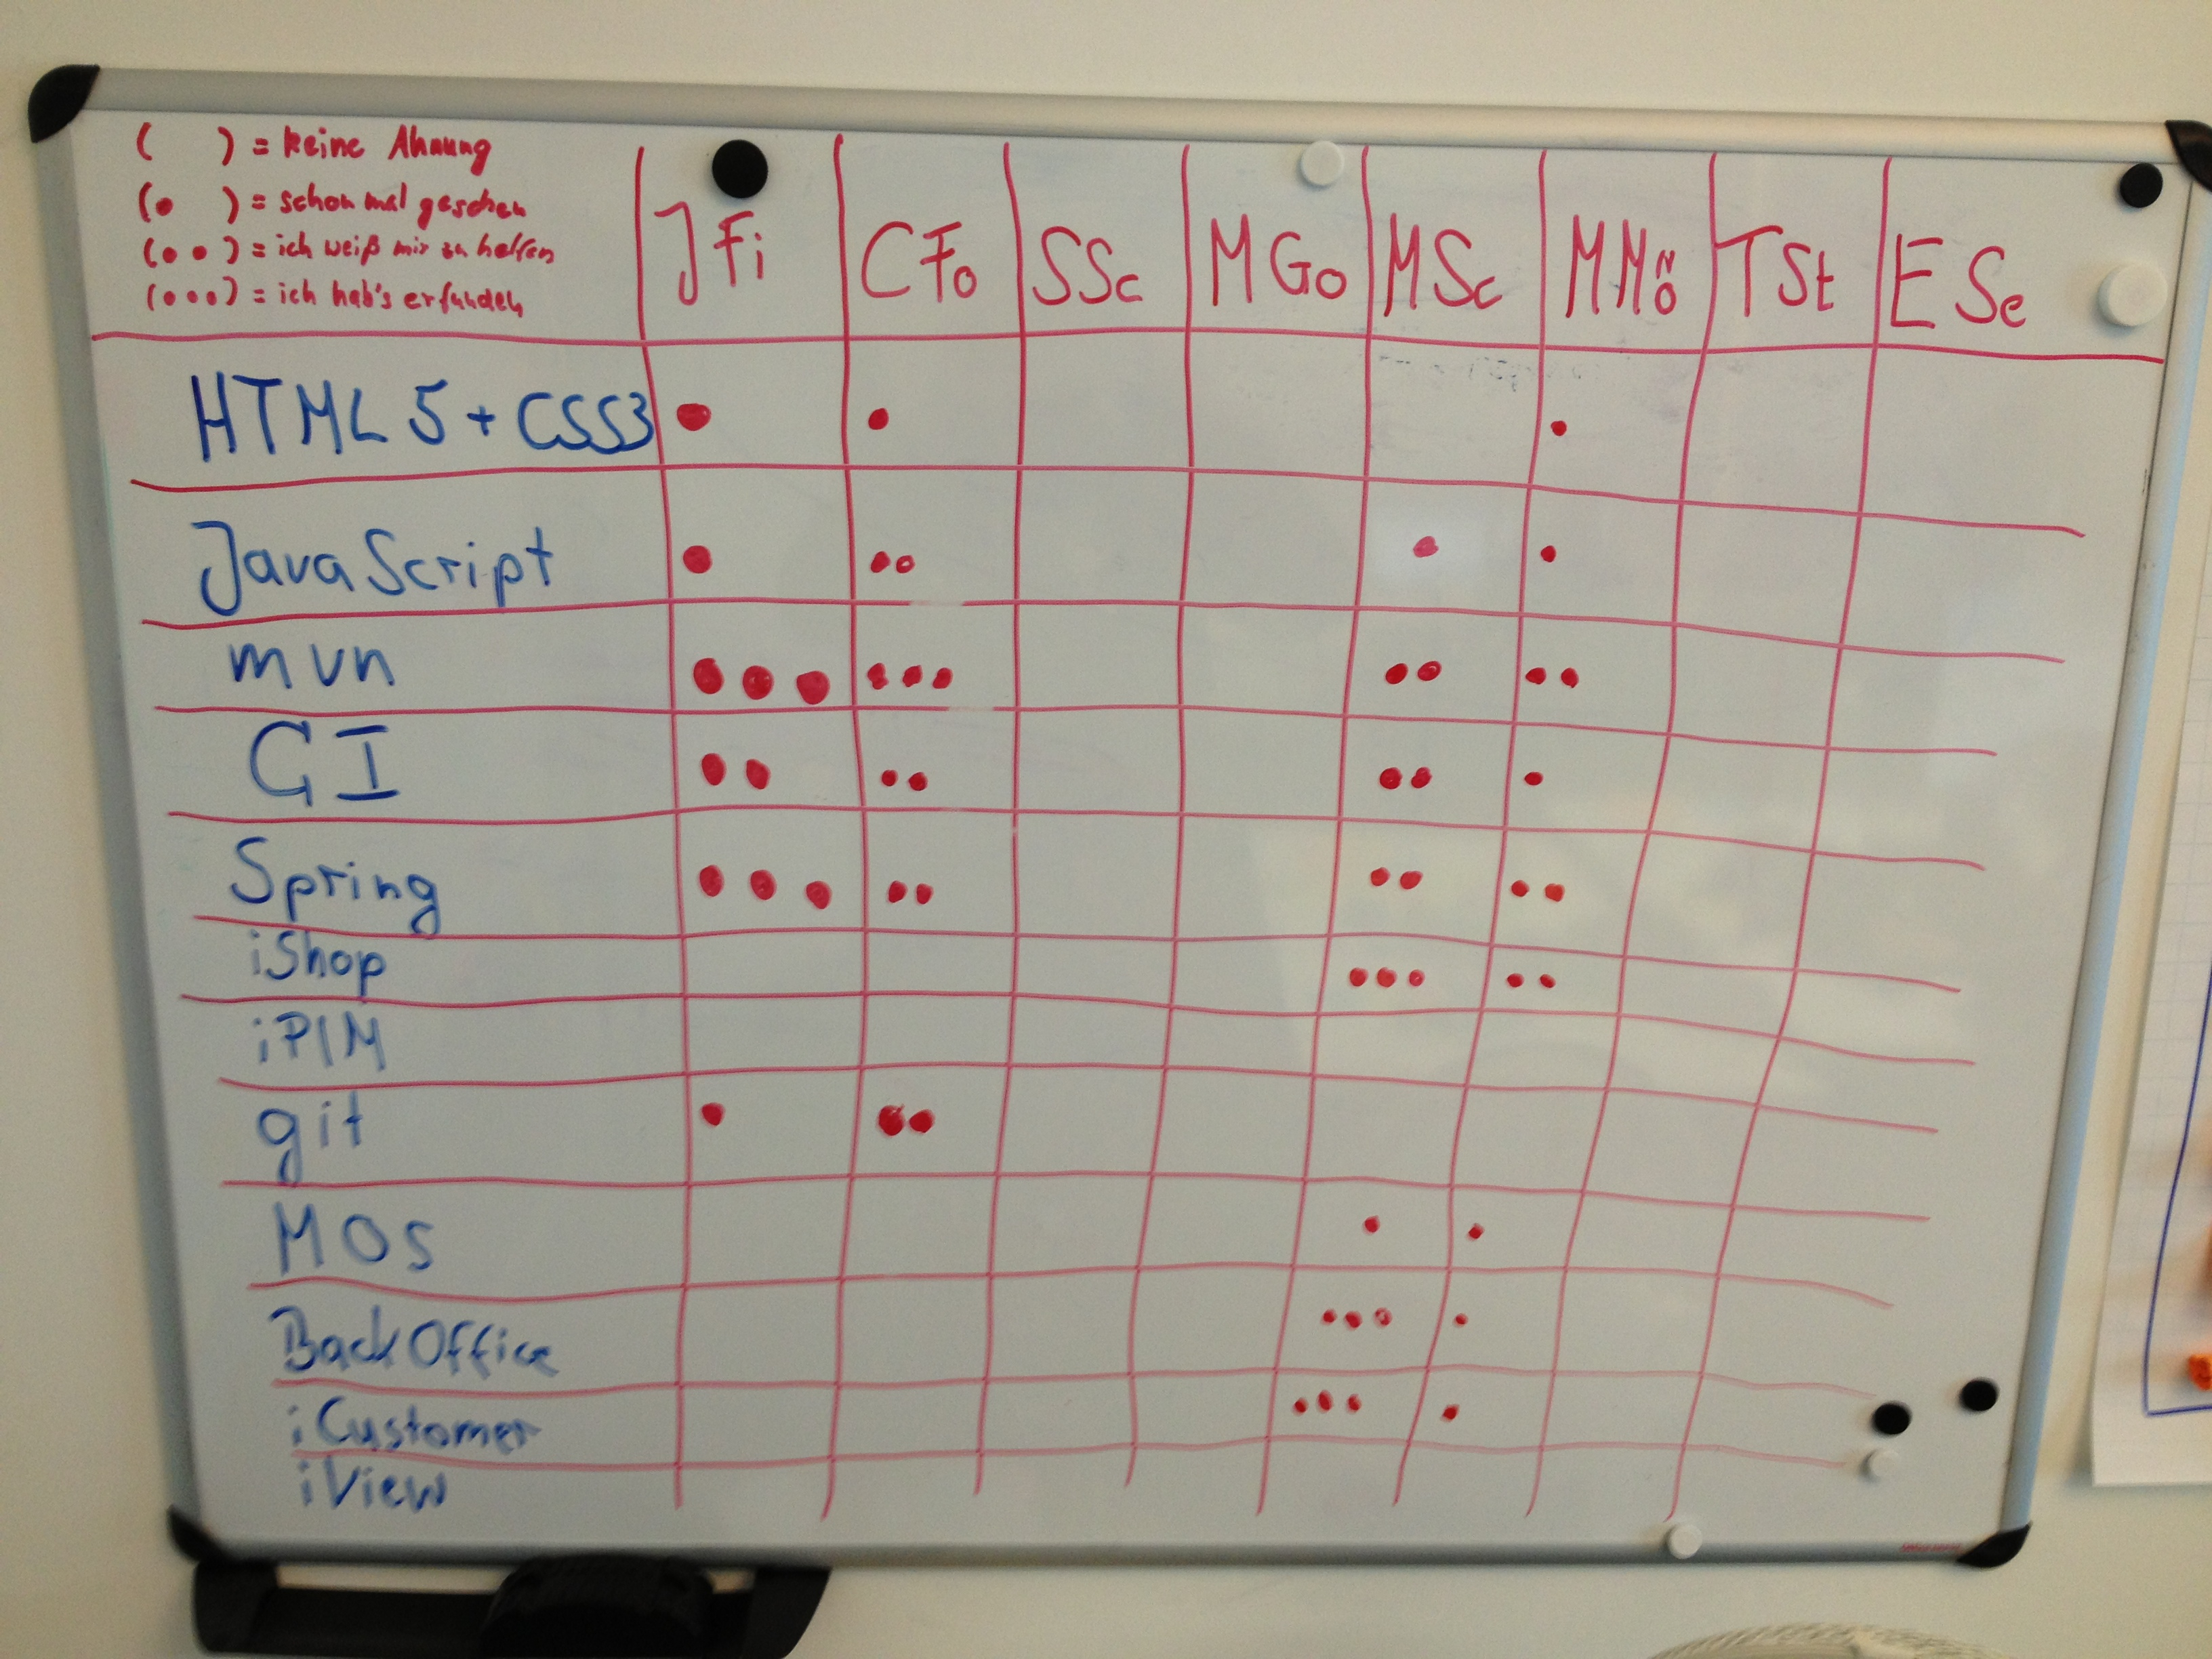 (    ) = keine Ahnung
(•   ) = schon mal gesehen
(• •) = ich weiß mir zu helfen
(•••) = ich hab's erfunden
JFi CFo SSc MGo MSc MMö TSt ESe
HTML 5 + CSS3 • • •
JavaScript • •• • •
mvn ••• ••• •• ••
CI •• •• •• •
Spring ••• •• •• ••
iShop ••• ••
iPIM
git • ••
MOS • •
BackOffice ••• •
iCustomer ••• •
iView